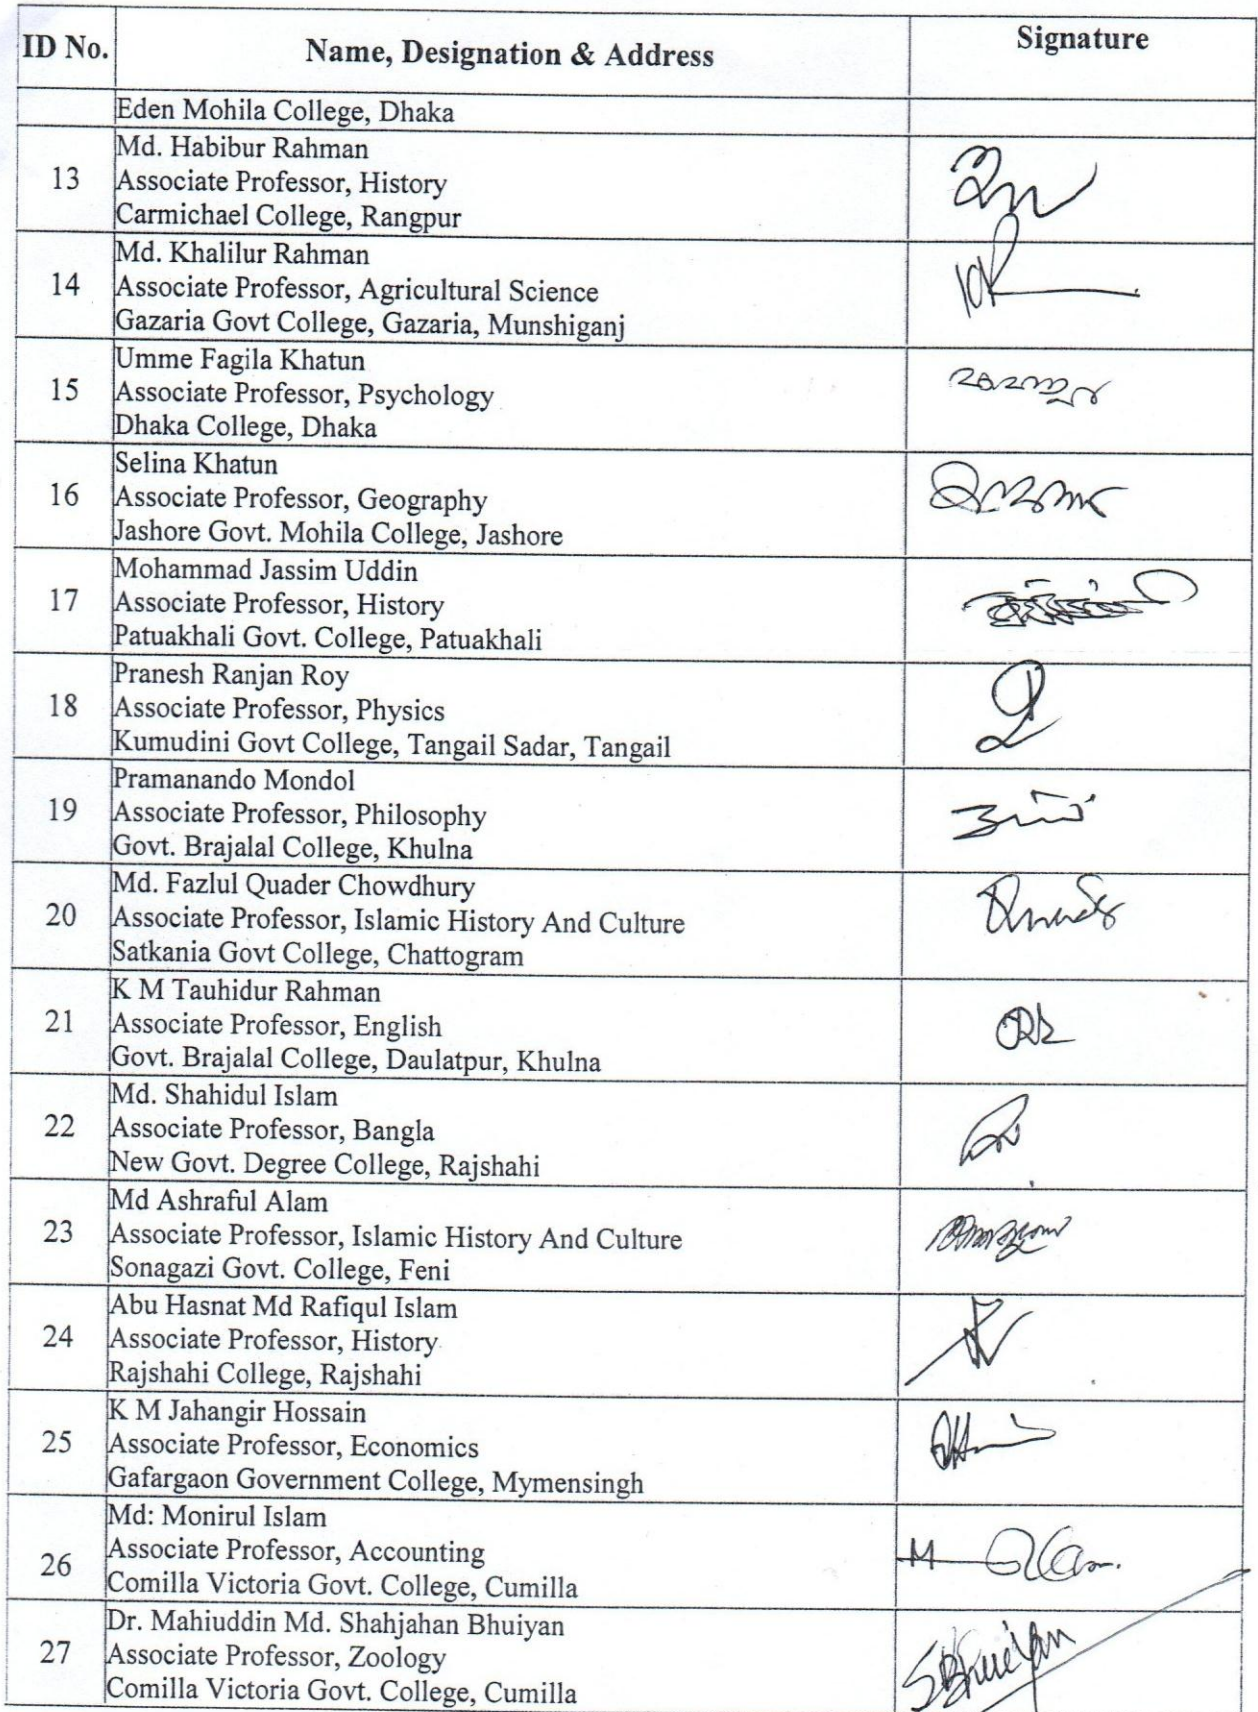 ID No. Name, Designation & Address Signature
Eden Mohila College, Dhaka
13 Md. Habibur Rahman
Associate Professor, History
Carmichael College, Rangpur
14 Md. Khalilur Rahman
Associate Professor, Agricultural Science
Gazaria Govt College, Gazaria, Munshiganj
15 Umme Fagila Khatun
Associate Professor, Psychology
Dhaka College, Dhaka
16 Selina Khatun
Associate Professor, Geography
Jashore Govt. Mohila College, Jashore
17 Mohammad Jassim Uddin
Associate Professor, History
Patuakhali Govt. College, Patuakhali
18 Pranesh Ranjan Roy
Associate Professor, Physics
Kumudini Govt College, Tangail Sadar, Tangail
19 Pramanando Mondol
Associate Professor, Philosophy
Govt. Brajalal College, Khulna
20 Md. Fazlul Quader Chowdhury
Associate Professor, Islamic History And Culture
Satkania Govt College, Chattogram
21 K M Tauhidur Rahman
Associate Professor, English
Govt. Brajalal College, Daulatpur, Khulna
22 Md. Shahidul Islam
Associate Professor, Bangla
New Govt. Degree College, Rajshahi
23 Md Ashraful Alam
Associate Professor, Islamic History And Culture
Sonagazi Govt. College, Feni
24 Abu Hasnat Md Rafiqul Islam
Associate Professor, History
Rajshahi College, Rajshahi
25 K M Jahangir Hossain
Associate Professor, Economics
Gafargaon Government College, Mymensingh
26 Md: Monirul Islam
Associate Professor, Accounting
Comilla Victoria Govt. College, Cumilla
27 Dr. Mahiuddin Md. Shahjahan Bhuiyan
Associate Professor, Zoology SBhuiyan
Comilla Victoria Govt. College, Cumilla